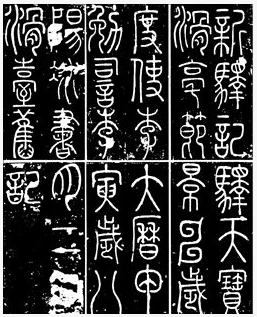 新驛記
滑亭節
度使李
勉言李
陽冰書
滑臺舊
驛天寶
景申歲
大曆甲
寅歲八
月
記